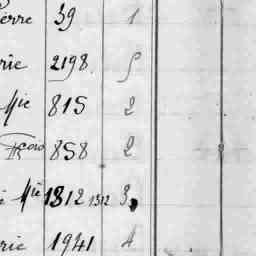 erre 39 1
rie 2198. 5
Mie 815 2
Fcois 858 2
Mie 1812 1312 3
rie 1941 4